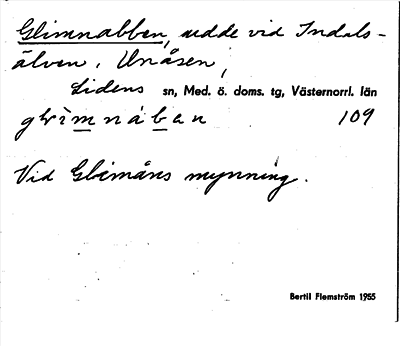 Glimnabben, udde vid Indals-
älven, Unåsen,
Lidens sn, Med. ö. doms. tg, Västernorrl. län
109
Vid Glimåns mynning.
Bertil Flemström 1955